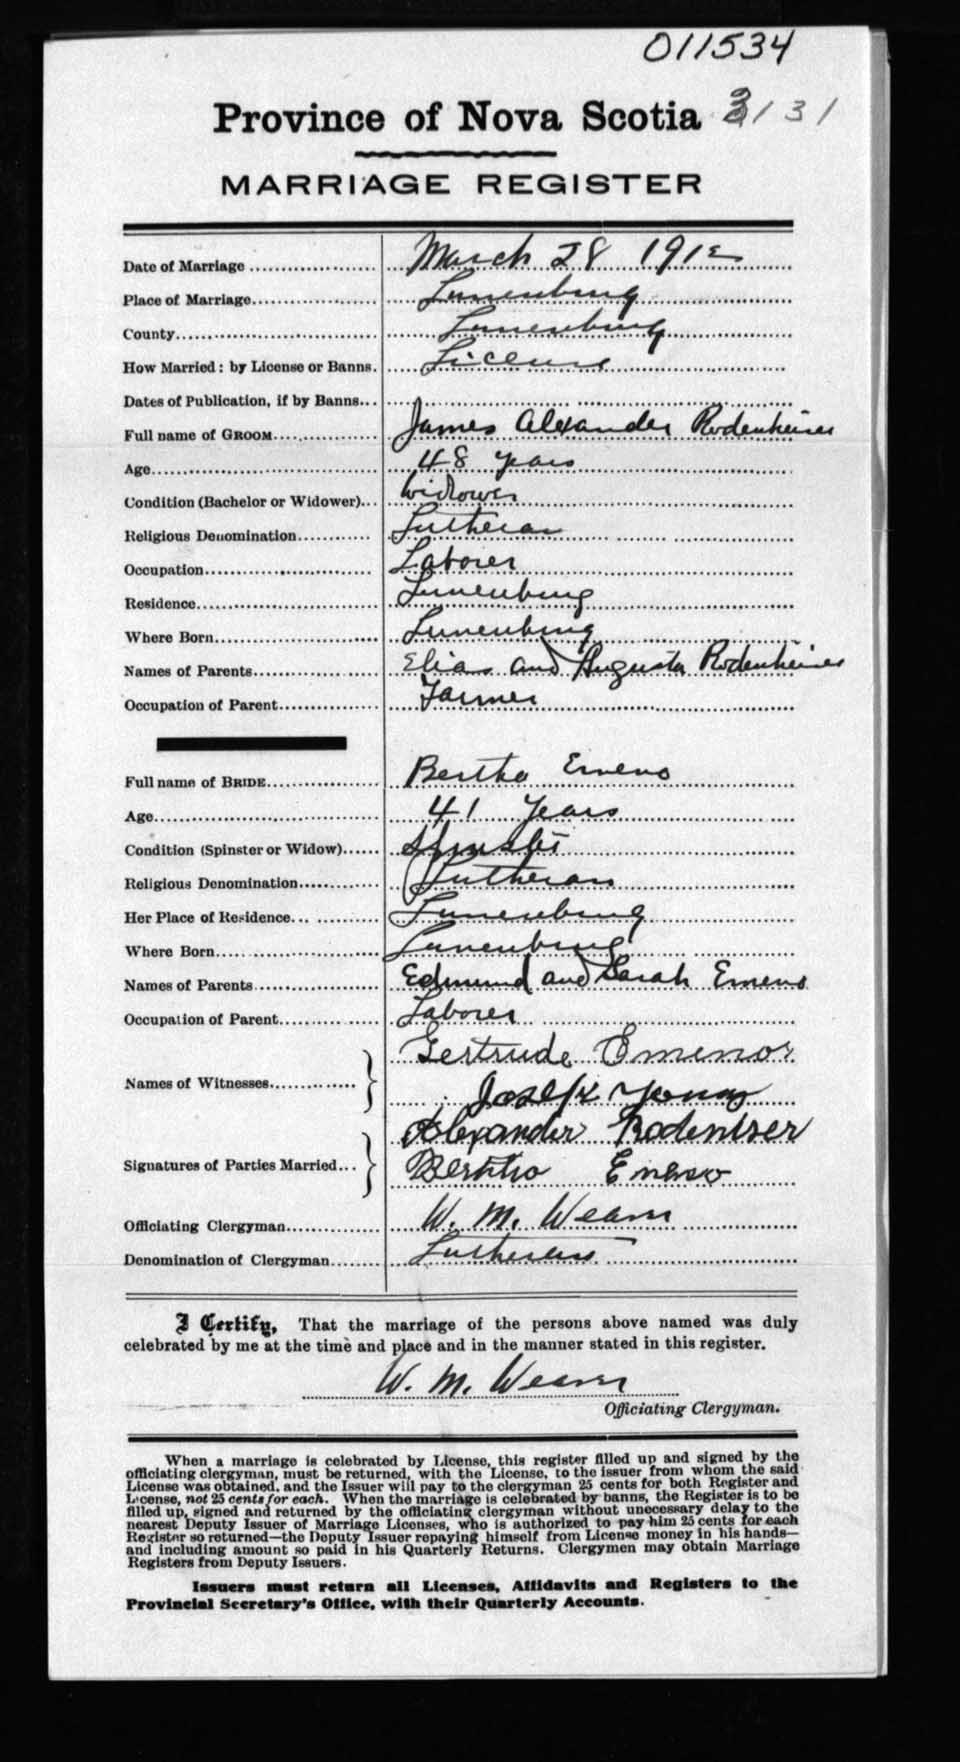 011534
Province of Nova Scotia 3131
MARRIAGE REGISTER
Date of Marriage March 28 1912
Place of Marriage Lunenburg
County Lunenburg
How Married: by License or Banns. License
Dates of Publication, if by Banns
Full name of GROOM James Alexander Rodenheiser
Age 48 years
Condition (Bachelor or Widower) Widower
Religious Denomination Lutheran
Occupation Laborer
Residence Lunenburg
Where Born Lunenburg
Names of Parents Elias and Augusta Rodenheiser
Occupation of Parent Farmer
Full name of BRIDE Bertha Emeno
Age 41 Years
Condition (Spinster or Widow) Spinster
Religious Denomination Lutheran
Her Place of Residence Lunenburg
Where Born Lunenburg
Names of Parents Edmund and Sarah Emeno
Occupation of Parent Laborer
Gertrude Emenor
Names of Witnesses
Josefx Young
Alexander Rodentser
Signatures of Parties Married
Bertho Eneso
Officiating Clergyman W. M. Wearn
Denomination of Clergyman Lutheran
I Certify, That the marriage of the persons above named was duly
celebrated by me at the time and place and in the manner stated in this register.
W. M. Wearn
Officiating Clergyman.
When a marriage is celebrated by License, this register filled up and signed by the
officiating clergyman, must be returned, with the License, to the issuer from whom the said
License was obtained, and the Issuer will pay to the clergyman 25 cents for both Register and
License, not 25 cents for each. When the marriage is celebrated by banns, the Register is to be
filled up, signed and returned by the officiating clergyman without unecessary delay to the
nearest Deputy Issuer of Marriage Licenses, who is authorized to pay him 25 cents for each
Register so returned—the Deputy Issuer repaying himself from License money in his hands—
and including amount so paid in his Quarterly Returns. Clergymen may obtain Marriage
Registers from Deputy Issuers.
Issuers must return all Licenses, Affidavits and Registers to the
Provincial Secretary's Office, with their Quarterly Accounts.